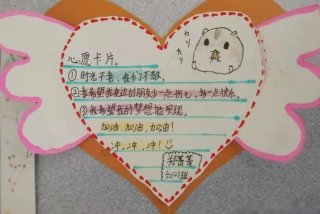 心愿卡片。
①时光不老,我们不散。
②我希望我身边的朋友少一点伤心,多一点快乐。
③我希望我的梦想能实现。
加油、加油、加油!
冲、冲、冲!
六(2)班